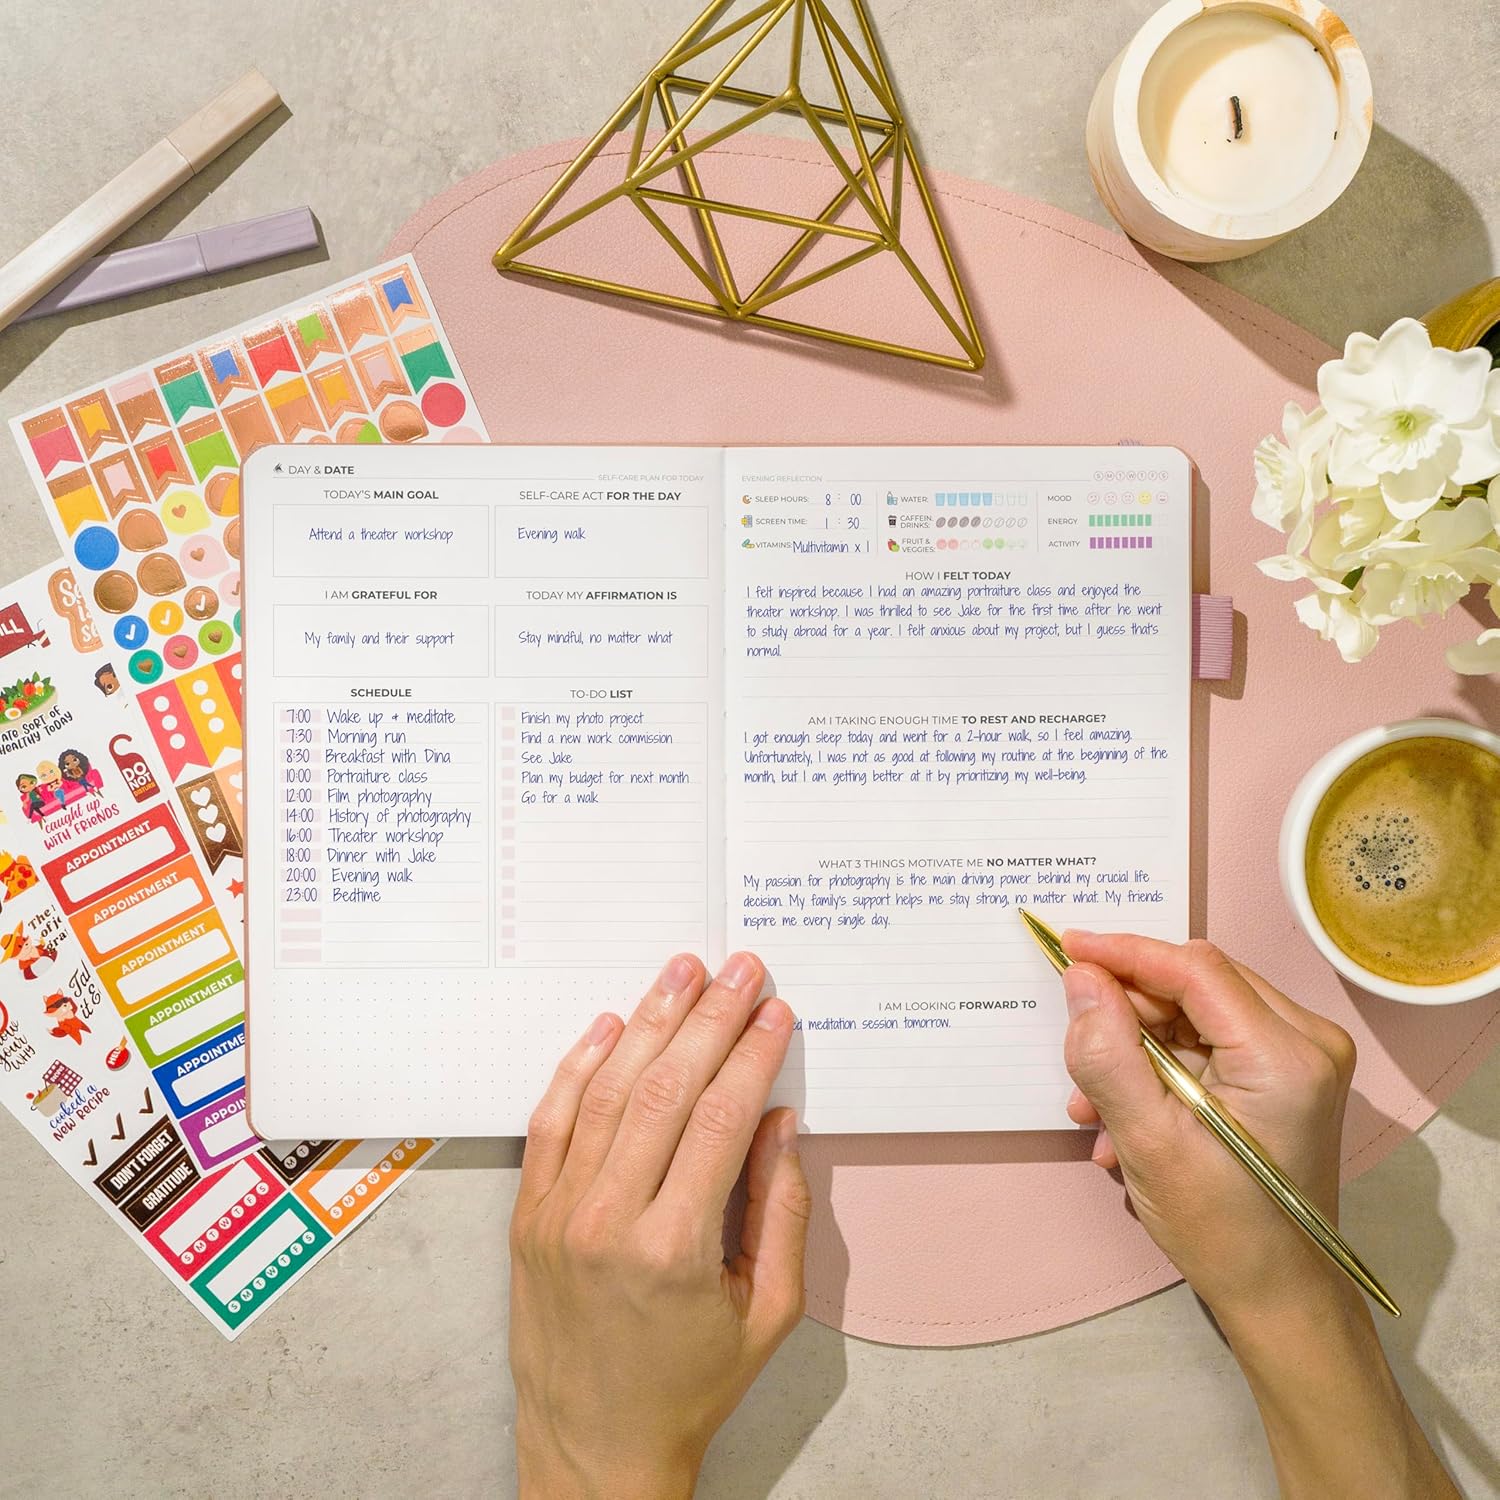 DAY & DATE
SELF-CARE PLAN FOR TODAY
TODAY'S MAIN GOAL
Attend a theater workshop
SELF-CARE ACT FOR THE DAY
Evening walk
I AM GRATEFUL FOR
My family and their support
TODAY MY AFFIRMATION IS
Stay mindful, no matter what
SCHEDULE
7:00 Wake up & meditate
7:30 Morning run
8:30 Breakfast with Dina
10:00 Portraiture class
12:00 Film photography
14:00 History of photography
16:00 Theater workshop
18:00 Dinner with Jake
20:00 Evening walk
23:00 Bedtime
TO-DO LIST
Finish my photo project
Find a new work commission
See Jake
Plan my budget for next month
Go for a walk
EVENING REFLECTION
S M T W T F S
SLEEP HOURS: 8 : 00
SCREEN TIME: 1 : 30
VITAMINS: Multivitamin x 1
WATER:
CAFFEIN.
DRINKS:
FRUIT &
VEGGIES:
MOOD
ENERGY
ACTIVITY
HOW I FELT TODAY
I felt inspired because I had an amazing portraiture class and enjoyed the
theater workshop. I was thrilled to see Jake for the first time after he went
to study abroad for a year. I felt anxious about my project, but I guess that's
normal.
AM I TAKING ENOUGH TIME TO REST AND RECHARGE?
I got enough sleep today and went for a 2-hour walk, so I feel amazing.
Unfortunately, I was not as good at following my routine at the beginning of the
month, but I am getting better at it by prioritizing my well-being.
WHAT 3 THINGS MOTIVATE ME NO MATTER WHAT?
My passion for photography is the main driving power behind my crucial life
decision. My family's support helps me stay strong, no matter what. My friends
inspire me every single day.
I AM LOOKING FORWARD TO
meditation session tomorrow.
ATE SORT OF
HEALTHY TODAY
DO
NOT
DISTURB
caught up
WITH FRIENDS
APPOINTMENT
APPOINTMENT
APPOINTMENT
APPOINTMENT
APPOINTME
APPOIN
The
of j
gra
cooked a
NEW RECIPE
DON'T FORGET
GRATITUDE
S M T W T F S
S M T W T F S
S M T W T F S